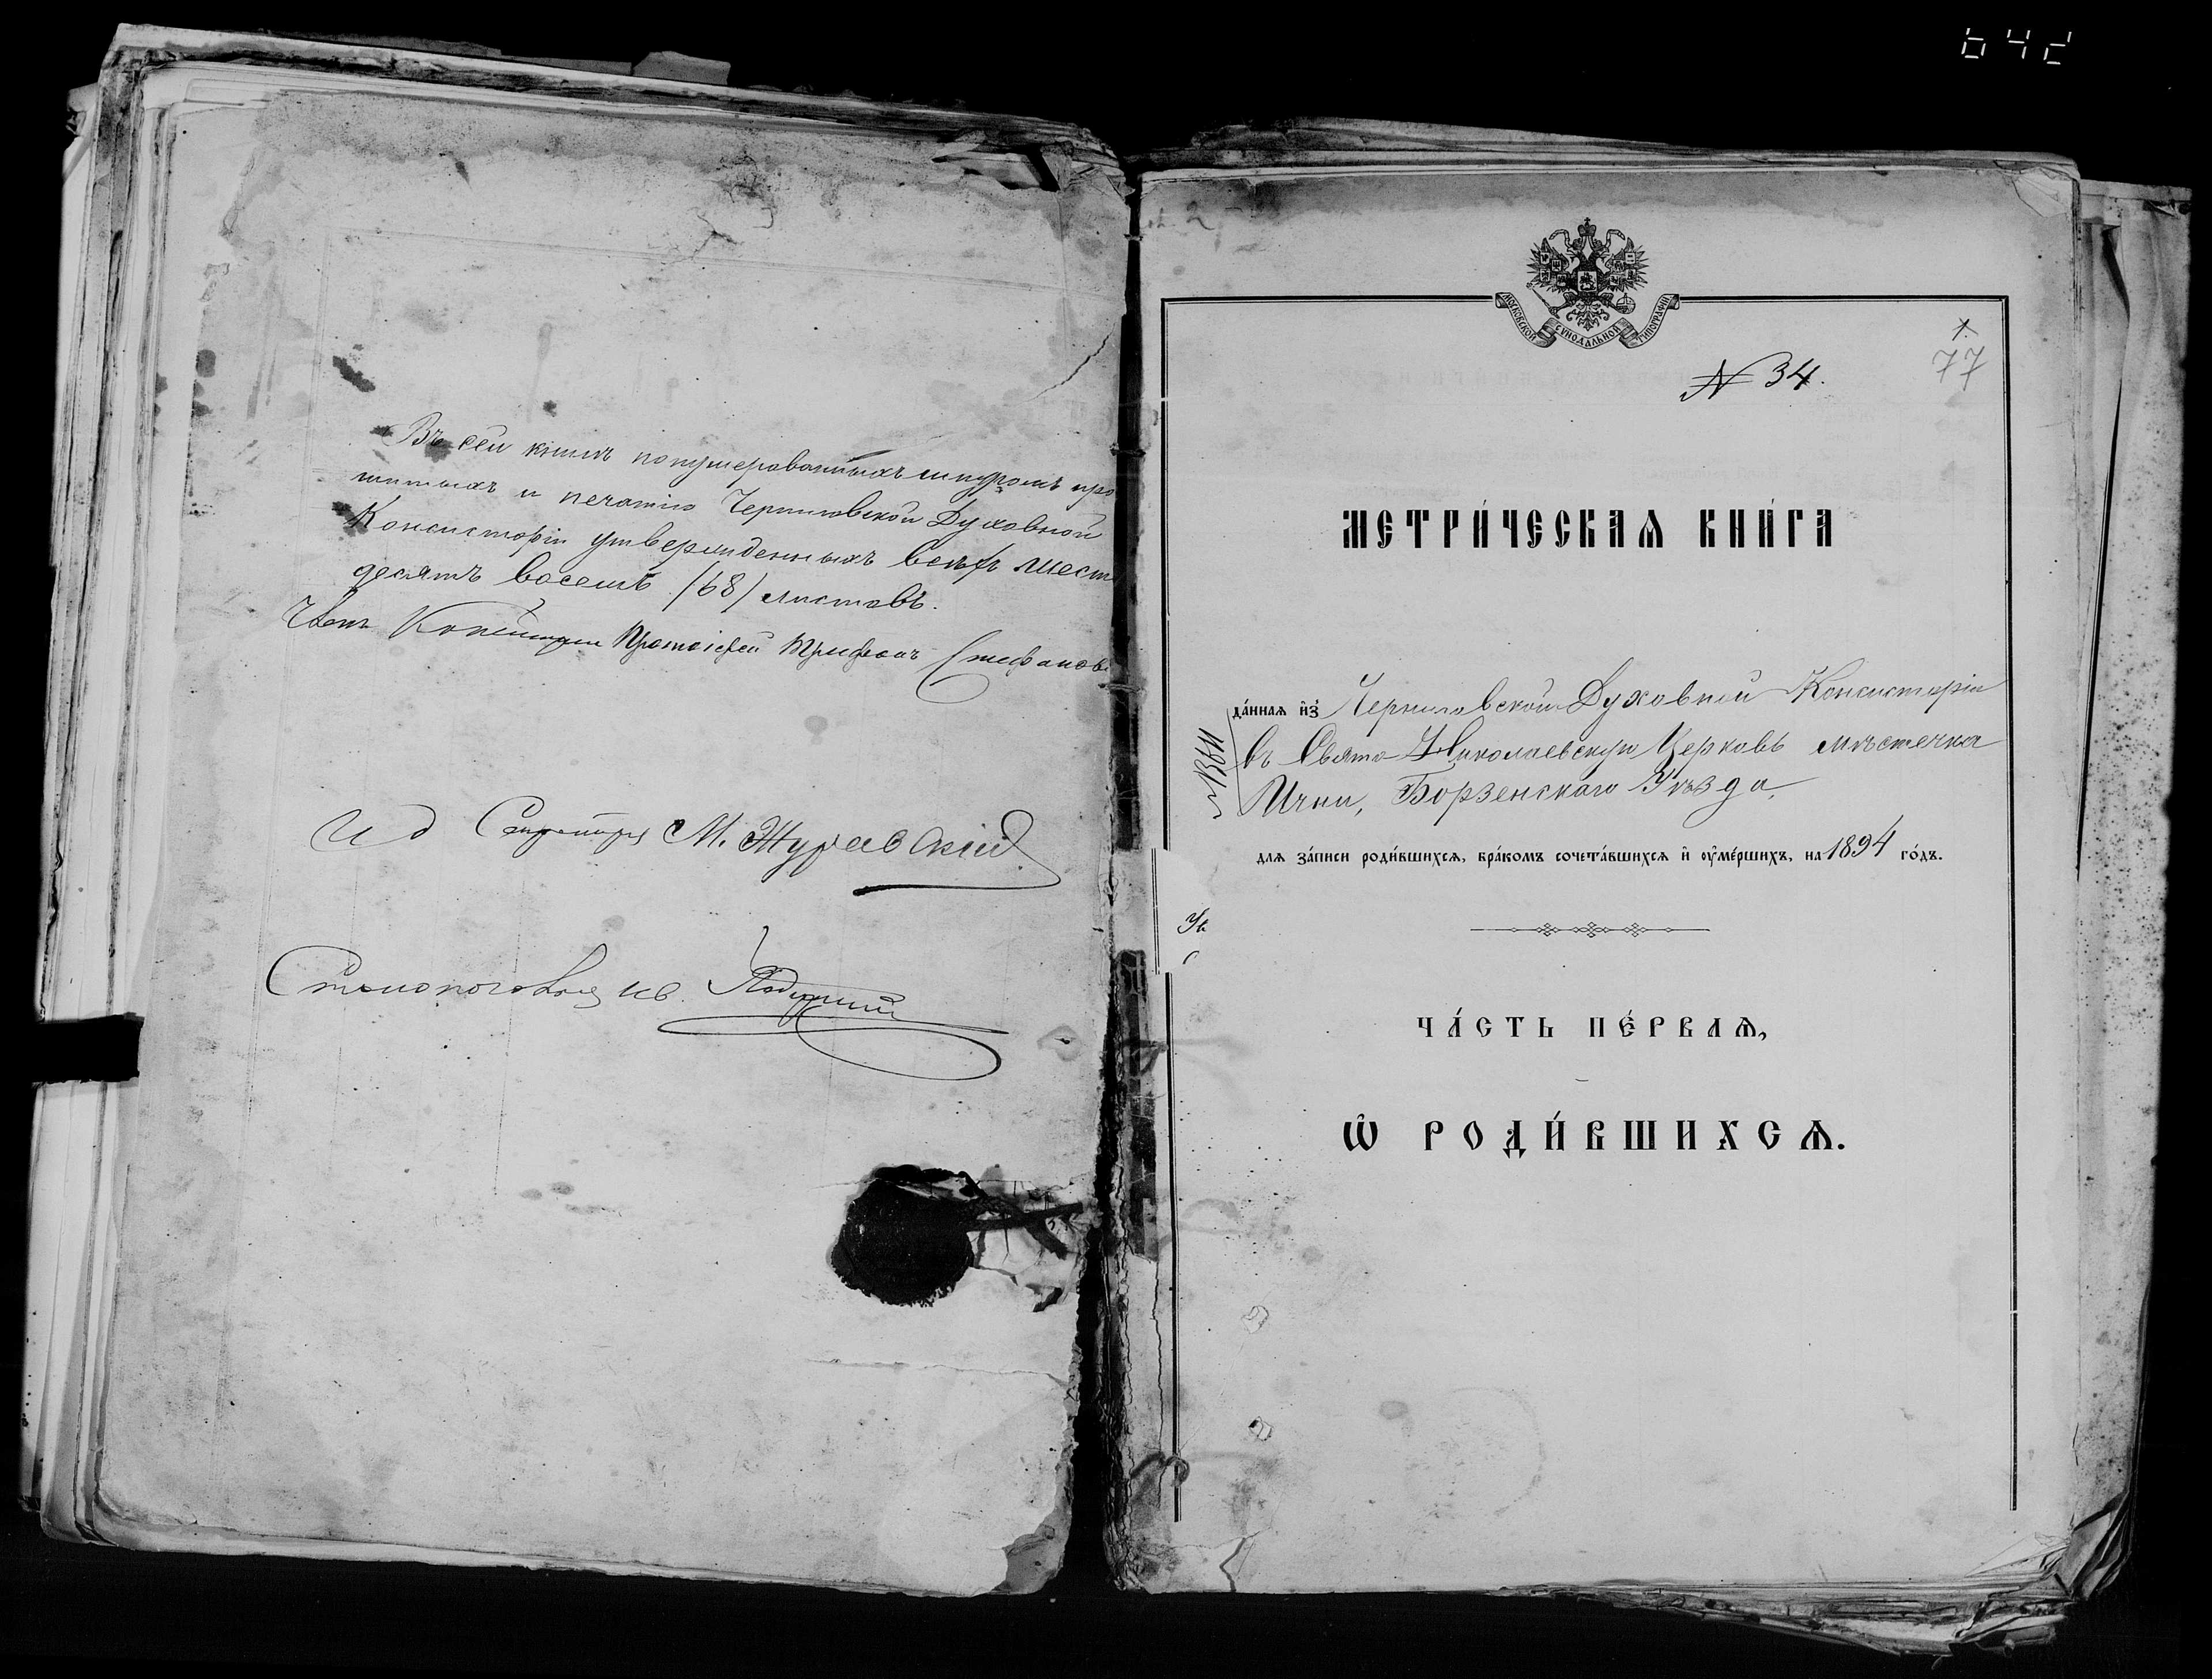 Въ сей книгѣ понумерованныхъ шнуромъ про
шитыхъ и печатію Черниговской Духовной
Консисторіи утвержденныхъ всѣхъ шест
десятъ восемь /68/ листовъ.
Членъ Консисторіи Протоіерей Трифонъ Стефановс
И д Секретаря М. Журавскій
Столоначальникъ
МОСКОВСКОЙ СУНОДАЛЬНОЙ ТИПОГРАФІИ
1.
77
№ 34.
МЕТРИ́ЧЕСКАѦ КНИ́ГА
да́ннаѧ и҆з̾ Черниговской Духовной Консисторіи
въ Свято-Николаевскую Церковь мѣстечка
Ични, Борзенскаго Уѣзда,
длѧ за́писи роди́вшихсѧ, бра́комъ сочета́вшихсѧ и҆ ᲂу҆ме́ршихъ, на 1894 го́дъ.
ЧА́СТЬ ПЕ́РВАѦ,
Ѡ҆ РОДИ́ВШИХСѦ.